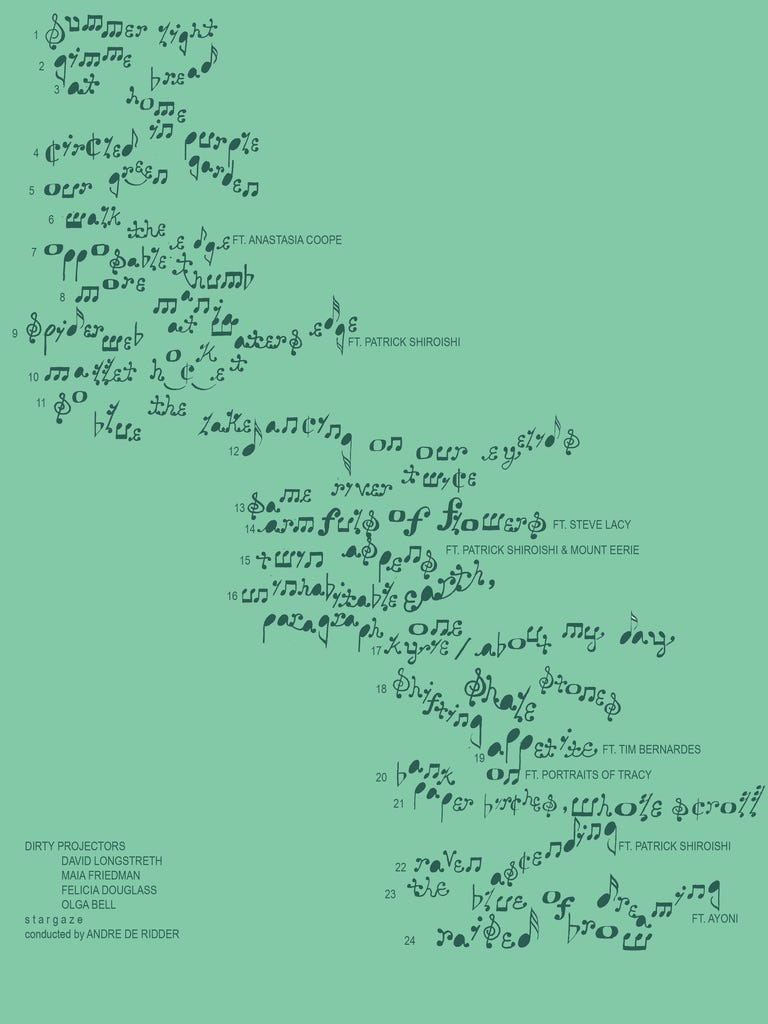 1 summer light
2 gimme bread
3 at home
4 circled in purple
5 our green garden
6 walk the edge FT. ANASTASIA COOPE
7 opposable thumb
8 more mania
9 spiderweb at waters edge FT. PATRICK SHIROISHI
10 mallet hocket
11 so blue the lake
12 dancing on our eyelids
13 same river twice
14 armfuls of flowers FT. STEVE LACY
15 twin aspens FT. PATRICK SHIROISHI & MOUNT EERIE
16 uninhabitable earth,
paragraph one
17 kyrie / about my day
18 shifting shale stones
19 appetite FT. TIM BERNARDES
20 bank on FT. PORTRAITS OF TRACY
21 paper birches, whole scroll
22 raven ascending FT. PATRICK SHIROISHI
23 the blue of dreaming
FT. AYONI
24 raised brow
DIRTY PROJECTORS
DAVID LONGSTRETH
MAIA FRIEDMAN
FELICIA DOUGLASS
OLGA BELL
stargaze
conducted by ANDRE DE RIDDER